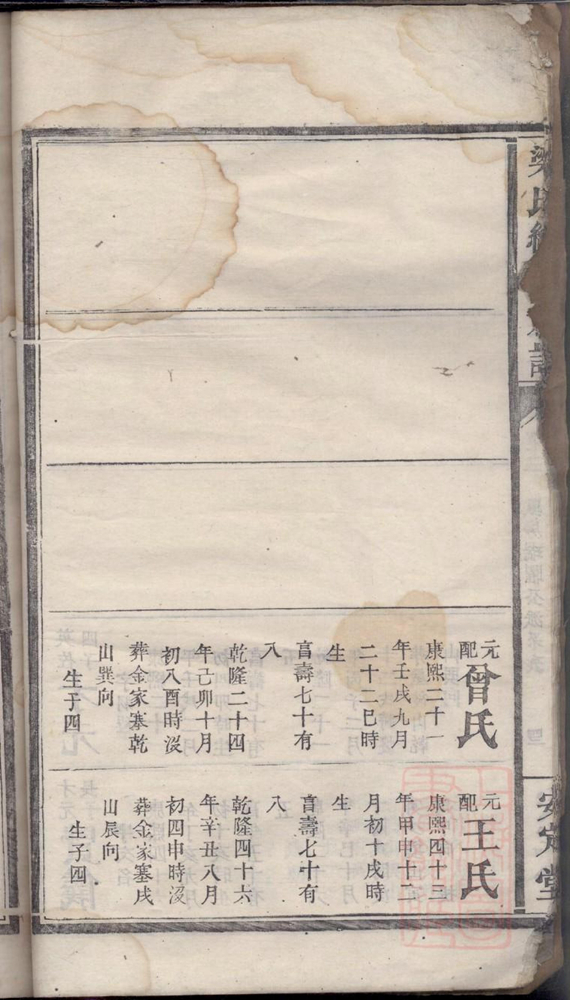 梁氏
族譜
安定堂
元配曾氏
康熙二十一
年壬戌九月
二十二巳時
生
享壽七十有
八
乾隆二十四
年己卯十月
初八酉時沒
葬金家寨乾
山巽向
生子四
元配王氏
康熙四十三
年甲申十二
月初十戌時
生
享壽七十有
八
乾隆四十六
年辛丑八月
初四申時沒
葬金家寨戌
山辰向
生子四